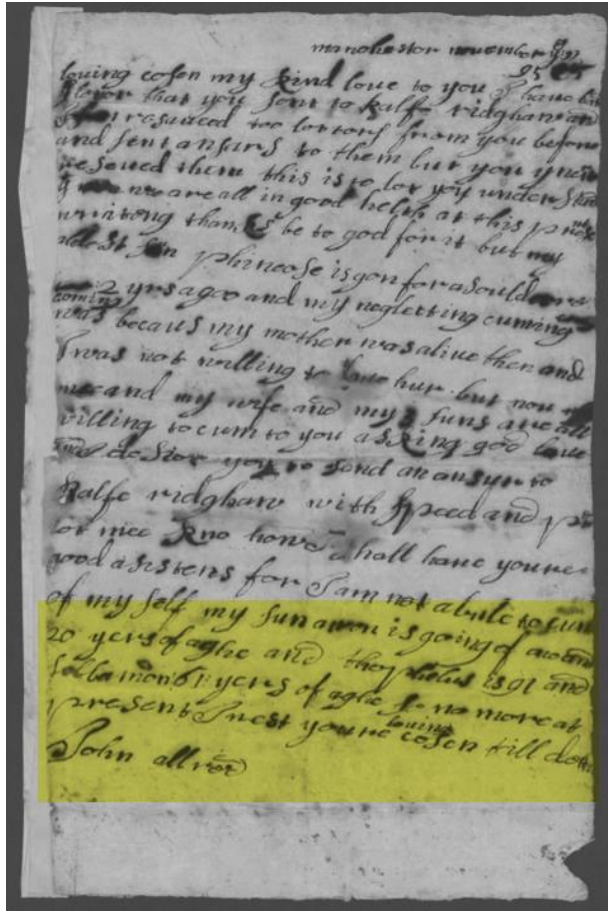 manchestor november ye
95
loving cosen my kind love to you I have
letor that you sent to Ralfe ridghaw and
I resaueed too lortors from you before
and sent ansurs to them but you
reseued them this is to let you under
we are all in good helth at this
writeng thanks be to god for it but my
aldest sun phineose is gon for a souldeer
coming 2 yrs agoo and my neglecting cuming
was becaus my mother was alive then and
I was not willing to leve hur but now
mee and my wife and my 3 suns are all
willing to cum to you asking god leve
and desior you to send an ansyr to
Ralfe ridghaw with speed and
let mee kno how I shall have youre
good asistens for I am not abule to cum
of my self my sun aron is going of
20 yers of aghe and thophelus is 91 and
sollamon 61 yers of aghe so no more at
present I rest youre loving cosen till
John allred